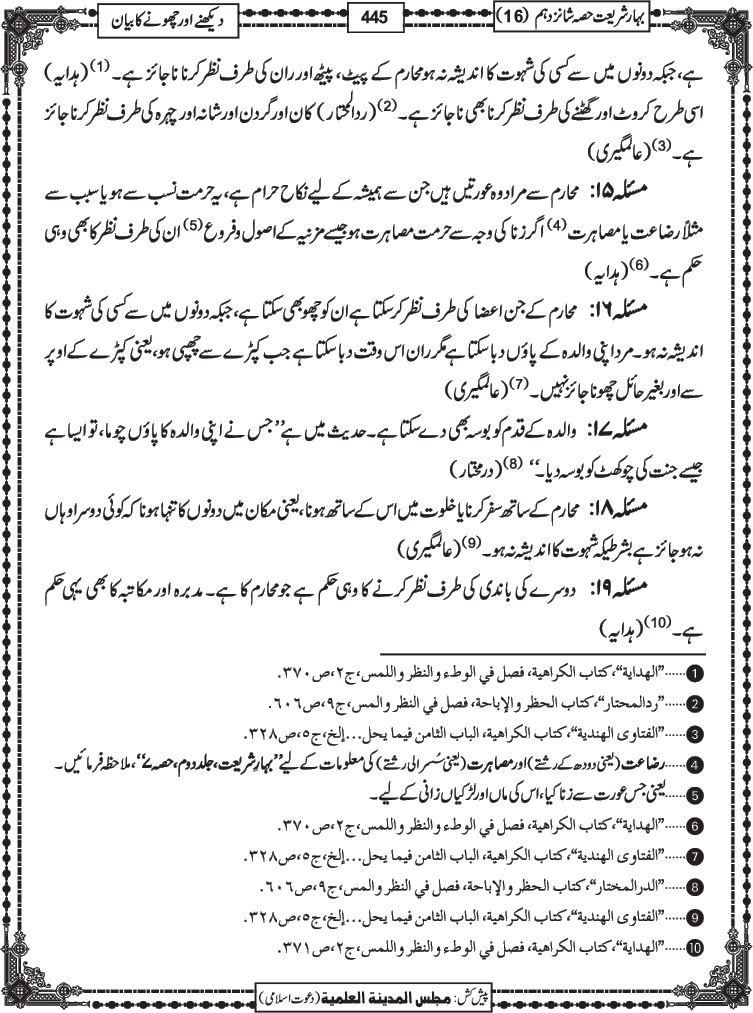 بہارِ شریعت حصہ شانزدہم (16)
445
دیکھنے اور چھونے کا بیان
ہے، جبکہ دونوں میں سے کسی کی شہوت کا اندیشہ نہ ہو محارم کے پیٹ، پیٹھ اور ران کی طرف نظر کرنا ناجائز ہے۔(1) (ہدایہ)
اسی طرح کروٹ اور گھٹنے کی طرف نظر کرنا بھی ناجائز ہے۔(2) (ردالمحتار) کان اور گردن اور شانہ اور چہرہ کی طرف نظر کرنا جائز
ہے۔(3) (عالمگیری)
مسئلہ ۱۵: محارم سے مراد وہ عورتیں ہیں جن سے ہمیشہ کے لیے نکاح حرام ہے، یہ حرمت نسب سے ہو یا سبب سے
مثلاً رضاعت یا مصاہرت(4) اگر زنا کی وجہ سے حرمت مصاہرت ہو جیسے مزنیہ کے اصول و فروع(5) ان کی طرف نظر کا بھی وہی
حکم ہے۔(6) (ہدایہ)
مسئلہ ۱۶: محارم کے جن اعضا کی طرف نظر کر سکتا ہے ان کو چھو بھی سکتا ہے، جبکہ دونوں میں سے کسی کی شہوت کا
اندیشہ نہ ہو۔ مرد اپنی والدہ کے پاؤں دبا سکتا ہے مگر ران اس وقت دبا سکتا ہے جب کپڑے سے چھپی ہو، یعنی کپڑے کے اوپر
سے اور بغیر حائل چھونا جائز نہیں۔(7) (عالمگیری)
مسئلہ ۱۷: والدہ کے قدم کو بوسہ بھی دے سکتا ہے۔ حدیث میں ہے ’’جس نے اپنی والدہ کا پاؤں چوما، تو ایسا ہے
جیسے جنت کی چوکھٹ کو بوسہ دیا۔‘‘(8) (درمختار)
مسئلہ ۱۸: محارم کے ساتھ سفر کرنا یا خلوت میں اس کے ساتھ ہونا، یعنی مکان میں دونوں کا تنہا ہونا کہ کوئی دوسرا وہاں
نہ ہو جائز ہے بشرطیکہ شہوت کا اندیشہ نہ ہو۔(9) (عالمگیری)
مسئلہ ۱۹: دوسرے کی باندی کی طرف نظر کرنے کا وہی حکم ہے جو محارم کا ہے۔ مدبرہ اور مکاتبہ کا بھی یہی حکم
ہے۔(10) (ہدایہ)
1......”الهداية“، كتاب الكراهية، فصل في الوطء والنظر واللمس، ج٢، ص٣٧٠.
2......”ردالمحتار“، كتاب الحظر والإباحة، فصل في النظر والمس، ج٩، ص٦٠٦.
3......”الفتاوى الهندية“، كتاب الكراهية، الباب الثامن فيما يحل...إلخ، ج٥، ص٣٢٨.
4......رضاعت (یعنی دودھ کے رشتے) اور مصاہرت (یعنی سُسرالی رشتے) کی معلومات کے لیے ”بہارِ شریعت، جلد دوم، حصہ ۷“، ملاحظہ فرمائیں۔
5......یعنی جس عورت سے زنا کیا، اس کی ماں اور لڑکیاں زانی کے لیے۔
6......”الهداية“، كتاب الكراهية، فصل في الوطء والنظر واللمس، ج٢، ص٣٧٠.
7......”الفتاوى الهندية“، كتاب الكراهية، الباب الثامن فيما يحل...إلخ، ج٥، ص٣٢٨.
8......”الدرالمختار“، كتاب الحظر والإباحة، فصل في النظر والمس، ج٩، ص٦٠٦.
9......”الفتاوى الهندية“، كتاب الكراهية، الباب الثامن فيما يحل...إلخ، ج٥، ص٣٢٨.
10......”الهداية“، كتاب الكراهية، فصل في الوطء والنظر واللمس، ج٢، ص٣٧١.
پیش کش: مجلس المدينة العلمية (دعوت اسلامی)